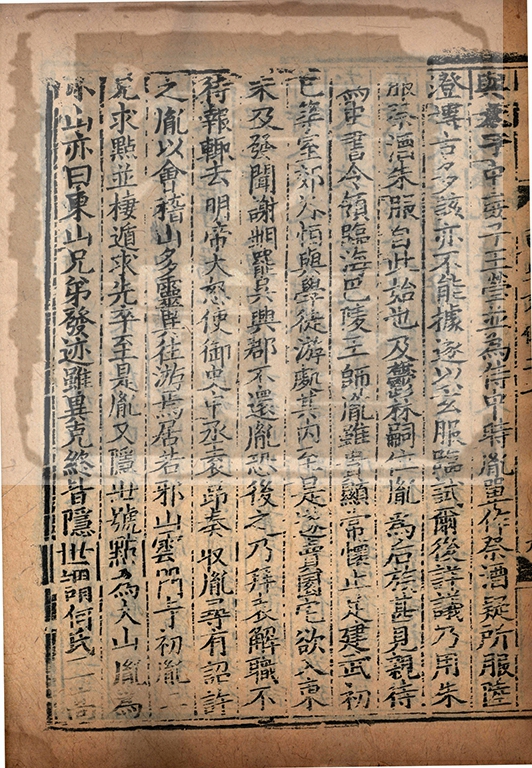 與太子中庶子王瑩並為侍中時胤單作祭酒疑所服陸
澄博古多該亦不能據遂以玄服臨試爾後詳議乃用朱
服祭酒朱服自此始也及鬱林嗣位胤為后族甚見親待
為中書令領臨海巴陵王師胤雖貴顯常懷止足建武初
已築室郊外恒與學徒游處其內至是遂賣園宅欲入東
未及發聞謝朏罷吳興郡不還胤恐後之乃拜表解職不
待報輒去明帝大怒使御史中丞袁昂奏收胤尋有詔許
之胤以會稽山多靈異往游焉居若邪山雲門寺初胤二
兄求點並棲遁求先卒至是胤又隱世號點為大山胤為
小山亦曰東山兄弟發迹雖異克終皆隱世謂何氏三高